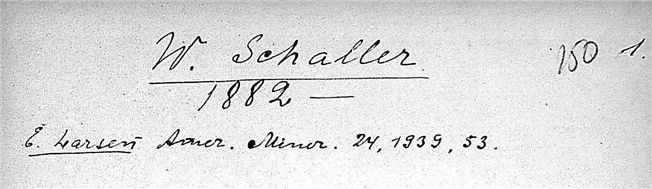 W. Schaller 150 1.
1882 —
E. Larsen Amer. Miner. 24, 1939, 53.